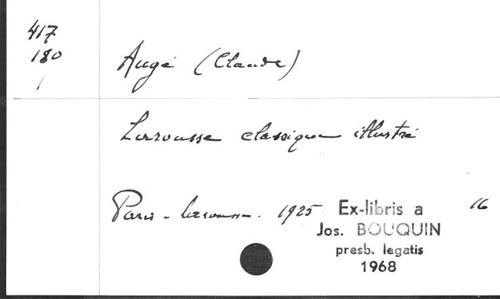 417
180
1
Augé (Claude)
Larousse classique illustré
Paris - Larousse. 1925 16
Ex-libris a
Jos. BOUQUIN
presb. legatis
1968